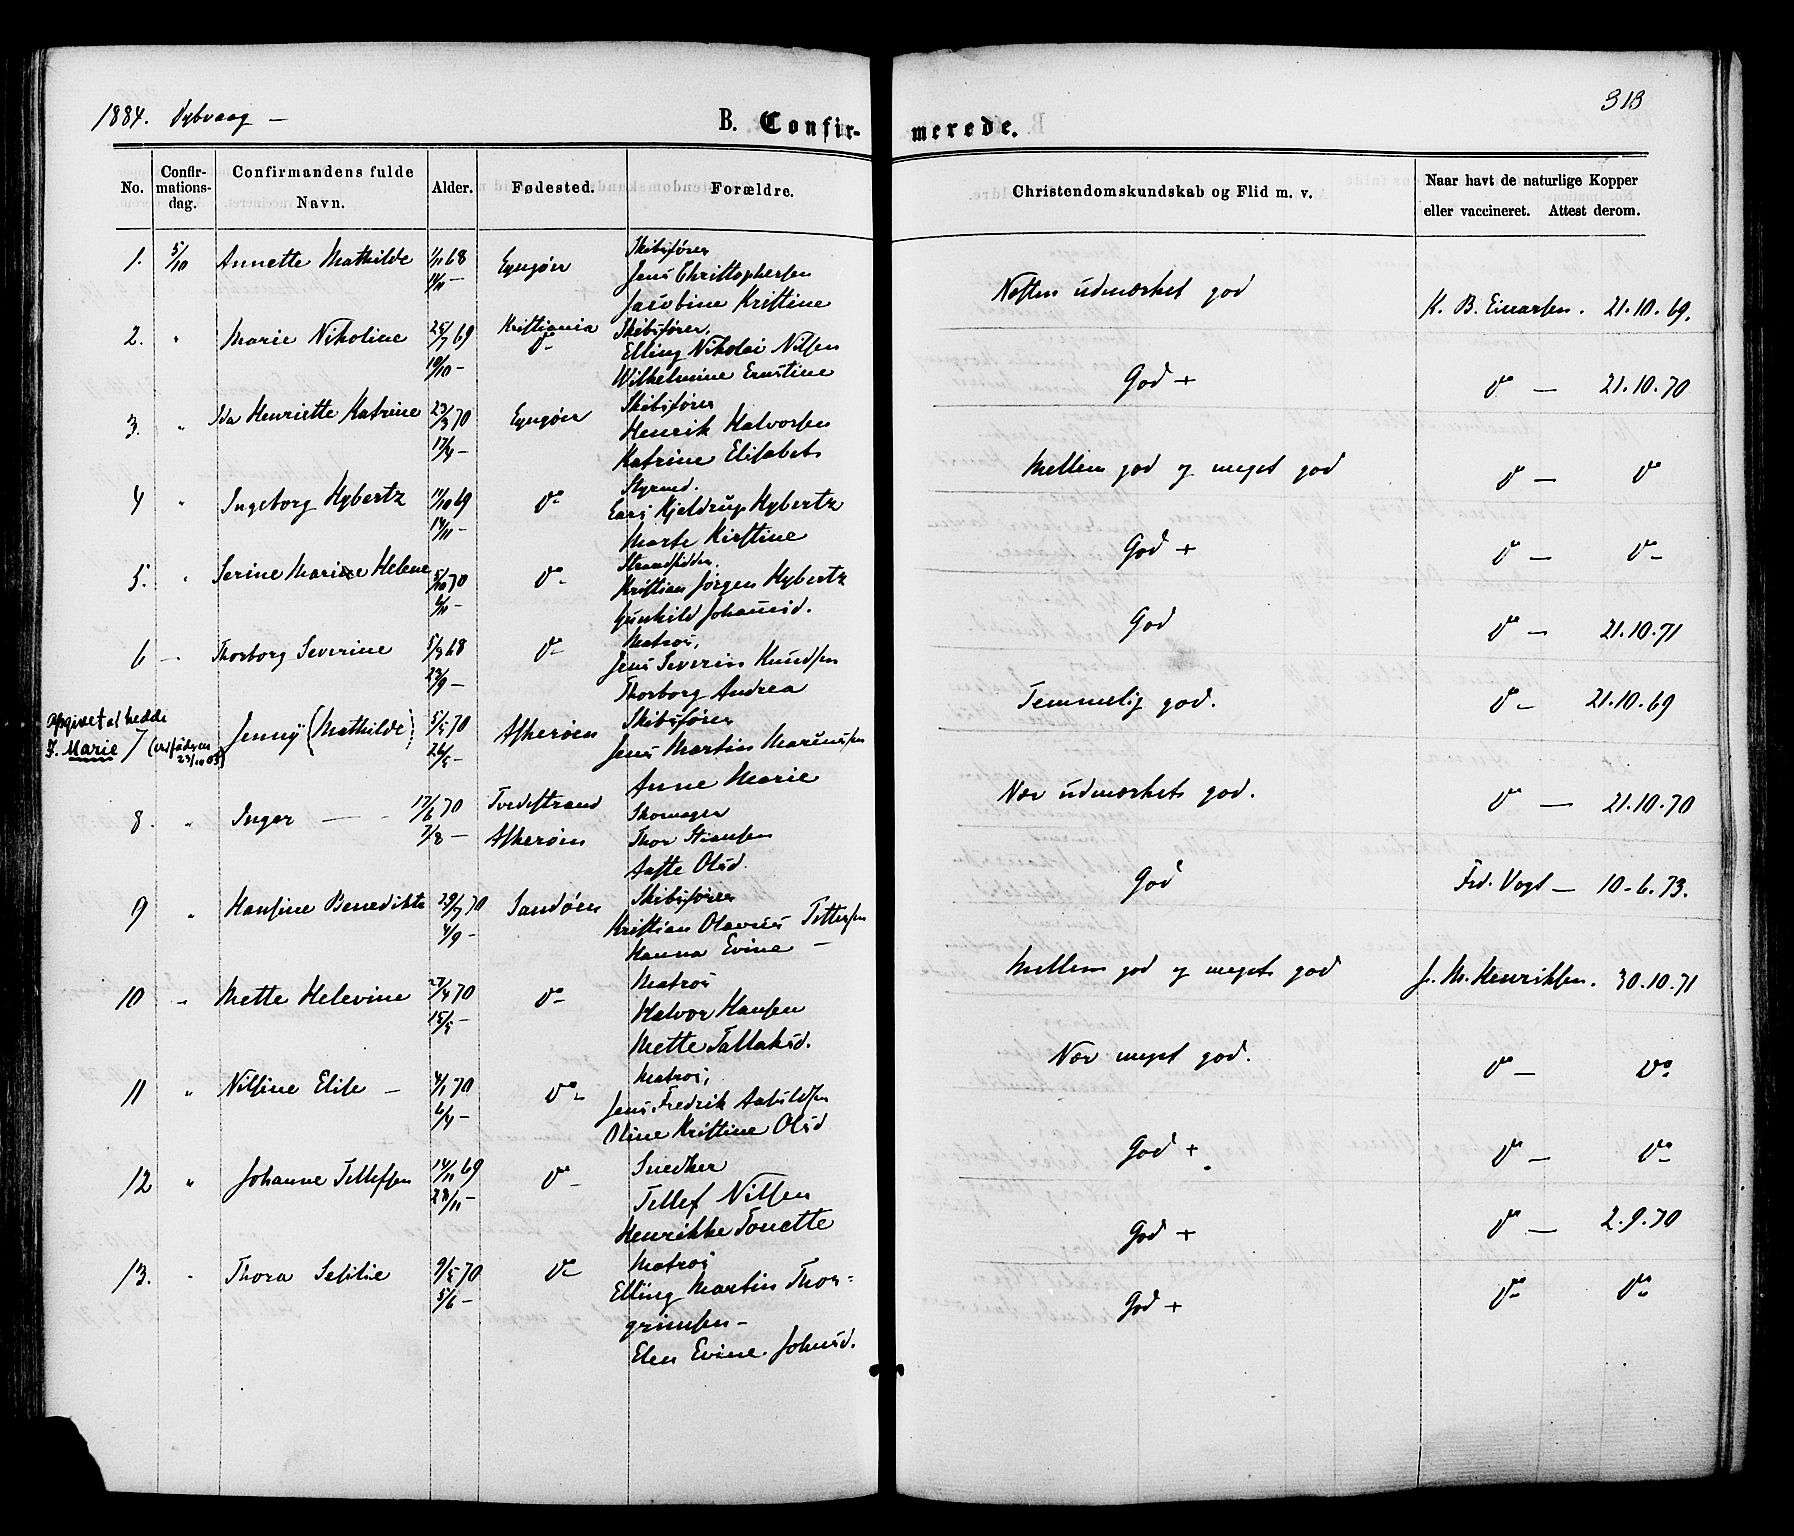 1884. Dybvaag —
B. Confir-
merede.
313
No.
Confir-
mations-
dag.
Confirmandens fulde
Navn.
Alder.
Fødested.
Forældre.
Christendomskundskab og Flid m. v.
Naar havt de naturlige Kopper
eller vaccineret. Attest derom.
1. 5/10 Annette Mathilde 1/11 68 Lyngøer Skibsfører
11/11 — Jens Christophersen
Jacobine Kristine
Næsten udmærket god K. B. Einarsen. 21.10.69.
2. " Marie Nikoline 25/7 69 Kristiania Skibsfører,
10/10 — Do Elling Nikolai Nilsen
Wilhelmine Ernstine
God + Do — 21.10.70
3. " Ida Henriette Katrine 23/3 70 Lyngøer Skibsfører
17/4 Henrik Halvorsen
Katrine Elisabet
Mellem god og meget god Do — Do
4 " Ingeborg Hybertz 17/10 69 Do Styrmd.
14/11 — Lars Kjeldrup Hybertz
Marte Kirstine
God + Do — Do
5. " Serine Marie Helene 5/10 70 Do Strandsidder,
6/11 — Kristian Jørgen Hybertz
Gunhild Johannsd.
God Do — 21.10.71
6 — Thorborg Severine 5/8 68 Do Matros,
23/9 — Jens Severin Knudsen
Thorborg Andrea
Temmelig god. Do — 21.10.69
opgivet at hedde
J. Marie 7 (ved fødegen 23/10 03) Jenny (Mathilde) 5/5 70 Askerøen Skibsfører
26/5 — Jens Martin Marensen
Anne Marie
Nær udmærket god. Do — 21.10.70
8. " Inger — 17/6 70 Tvedestrand Skomager
7/8 — Askerøen Thor Stiansen
Aaste Olsd.
God Frd. Vogt — 10-6.73.
9 " Hansine Benedikte 29/7 70 Sandøen Skibsfører
4/9 — Kristian Olavius Tellefsen
Hanna Evine —
Mellem god og meget god J. M. Henriksen. 30.10.71
10 " Mette Helevine 27/4 70 Do Matros
15/5 — Halvor Hansen
Mette Tallaksd.
Nær meget god. Do — Do
11 " Nilsine Elise — 4/1 70 Do Matros,
6/4 — Jens Fredrik Aasuldsen
Oline Kristine Olsd
God + Do — Do
12 " Johanne Tellefsen 14/11 69 Do Snedker
28/11 — Tellef Nilsen
Henrikke Tonette
God + Do — 2.9.70
13. " Thora Sesilie 9/5 70 Do Matros
5/6 — Elling Martin Thor-
grimsen —
Elen Evine. Johnsd.
God + Do Do